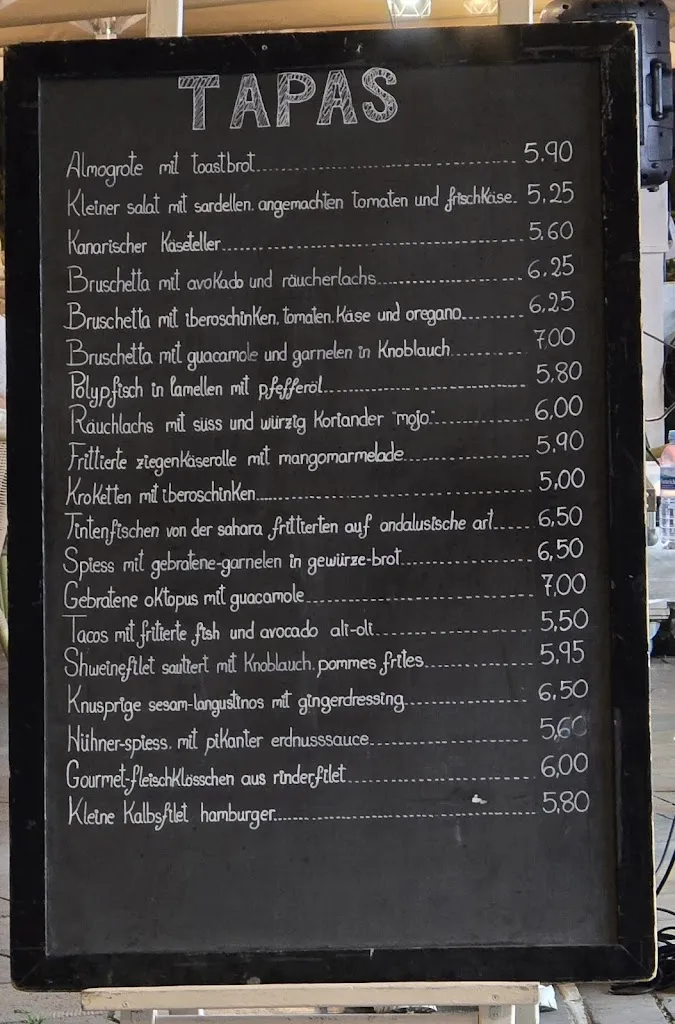 TAPAS
Almogrote mit toastbrot 5.90
Kleiner salat mit sardellen, angemachten tomaten und frischkäse. 5,25
Kanarischer Käseteller 5,60
Bruschetta mit avokado und räucherlachs 6,25
Bruschetta mit iberoschinken, tomaten, Käse und oregano 6,25
Bruschetta mit guacamole und garnelen in Knoblauch 7,00
Polypfisch in lamellen mit pfefferöl 5,80
Räuchlachs mit süss und würzig Koriander "mojo" 6,00
Frittierte ziegenkäserolle mit mangomarmelade 5,90
Kroketten mit iberoschinken 5,00
Tintenfischen von der sahara frittierten auf andalusische art 6,50
Spiess mit gebratene-garnelen in gewürze-brot 6,50
Gebratene oktopus mit guacamole 7,00
Tacos mit fritierte fish und avocado ali-oli 5,50
Shweinefilet sautiert mit Knoblauch, pommes frites 5,95
Knusprige sesam-langustinos mit gingerdressing 6,50
Hühner-spiess, mit pikanter erdnusssauce 5,60
Gourmet-fleischklösschen aus rinderfilet 6,00
Kleine Kalbsfilet hamburger 5,80